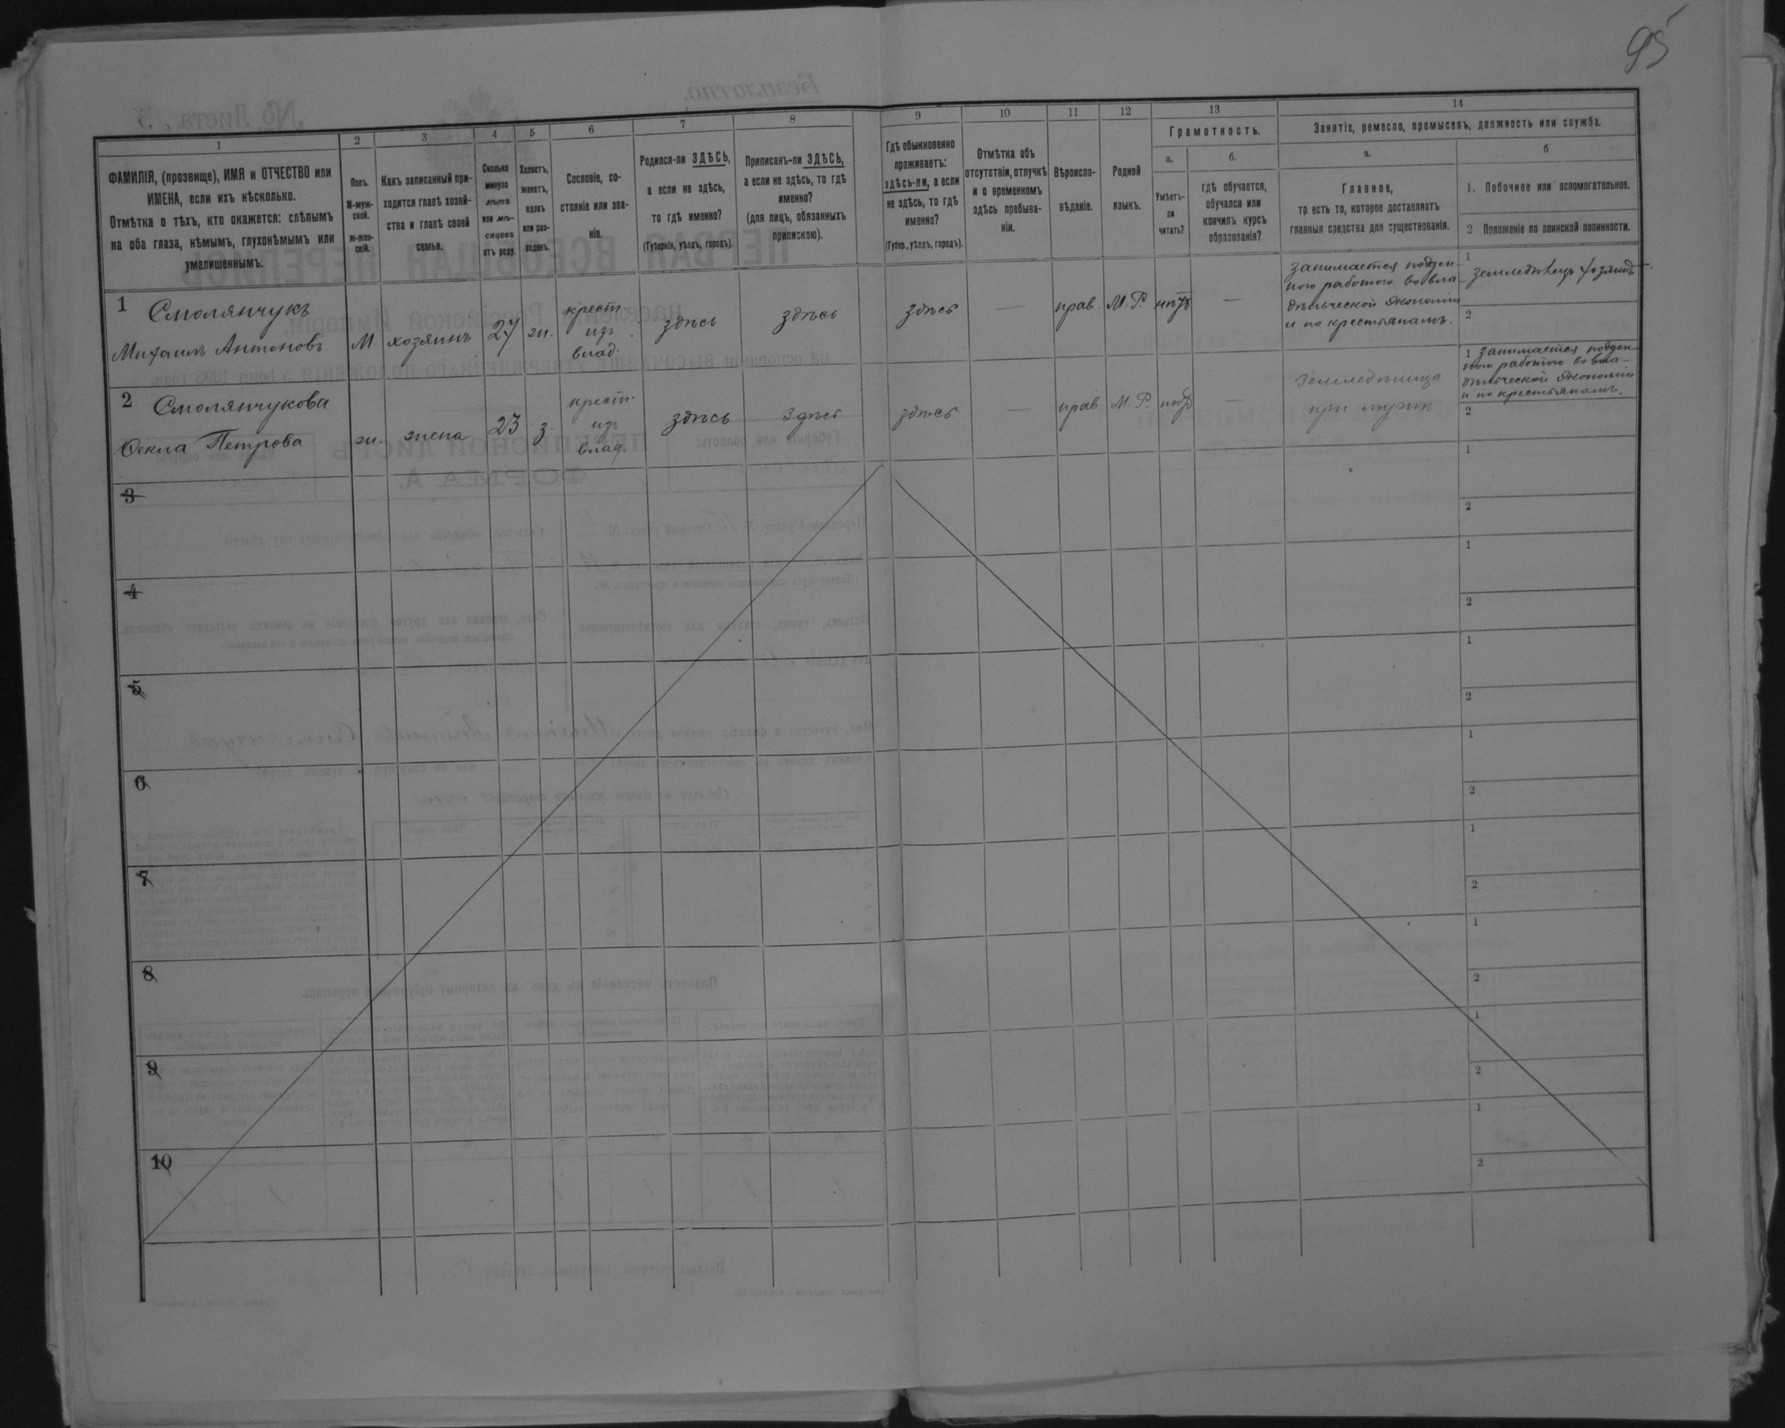 95
1
2
3
4
5
6
7
8
9
10
11
12
13
14
ФАМИЛІЯ, (прозвище), ИМЯ и ОТЧЕСТВО или
ИМЕНА, если ихъ нѣсколько.
Отмѣтка о тѣхъ, кто окажется: слѣпымъ
на оба глаза, нѣмымъ, глухонѣмымъ или
умалишеннымъ.
Полъ.
М-муж-
ской.
Ж-жен-
скій.
Какъ записанный при-
ходится главѣ хозяй-
ства и главѣ своей
семьи.
Сколько
минуло
лѣтъ
или мѣ-
сяцевъ
отъ роду.
Холостъ,
женатъ,
вдовъ
или раз-
веденъ.
Сословіе, со-
стояніе или зва-
ніе.
Родился-ли ЗДѢСЬ,
а если не здѣсь,
то гдѣ именно?
(Губернія, уѣздъ, городъ).
Приписанъ-ли ЗДѢСЬ,
а если не здѣсь, то гдѣ
именно?
(для лицъ, обязанныхъ
припискою).
Гдѣ обыкновенно
проживаетъ:
здѣсь-ли, а если
не здѣсь, то гдѣ
именно?
(Губер., уѣздъ, городъ).
Отмѣтка объ
отсутствіи, отлучкѣ
и о временномъ
здѣсь пребыва-
ніи.
Вѣроиспо-
вѣданіе.
Родной
языкъ.
Грамотность.
а.
Умѣетъ-
ли
читать?
б.
гдѣ обучается,
обучался или
кончилъ курсъ
образованія?
Занятіе, ремесло, промыселъ, должность или служба.
а.
Главное,
то есть то, которое доставляетъ
главныя средства для существованія.
б
1. Побочное или вспомогательное.
2 Положеніе по воинской повинности.
1 Смолянчукъ
Михаилъ Антоновъ
М. хозяинъ 27 ж.
крест.
изъ
влад.
здѣсь здѣсь здѣсь — прав. М.Р. нѣтъ —
занимается поден-
ною работою во вла
дѣльческой экономіи
и по крестьянамъ.
1 земледѣлецъ хозяинъ
2
2 Смолянчукова
Ѳекла Петрова
ж. жена 23 з.
крест.
изъ
влад.
здѣсь здѣсь здѣсь — прав. М.Р. нѣтъ —
при мужѣ
1 занимается поден-
ною работою во вла-
дѣльческой экономіи
и по крестьянамъ.
2
3
1
2
4
1
2
5
1
2
6
1
2
7
1
2
8
1
2
9
1
2
10
1
2